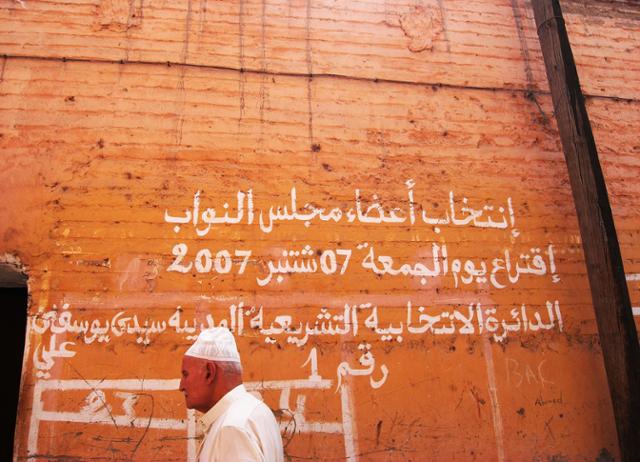 إنتخاب أعضاء مجلس النواب
إقتراع يوم الجمعة 07 شتنبر 2007
الدائرة الانتخابية التشريعية المدينة سيدي يوسف بن
علي
رقم 1
BAC
Ahmed